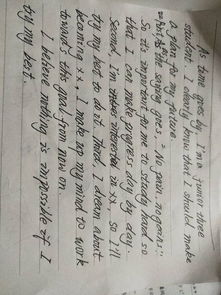 As time goes by, I'm a junior three
student. I clearly know that I should make
a plan to my future.
As the saying goes, "No pain, no gain."
So it's important to me to study hard so
that I can make progress day by day.
Second, I'm interested in xx, so I'll
try my best to do it. Third, I dream about
becoming xx, I make up my mind to work
toward this goal from now on
I believe nothing is impossible if I
try my best.